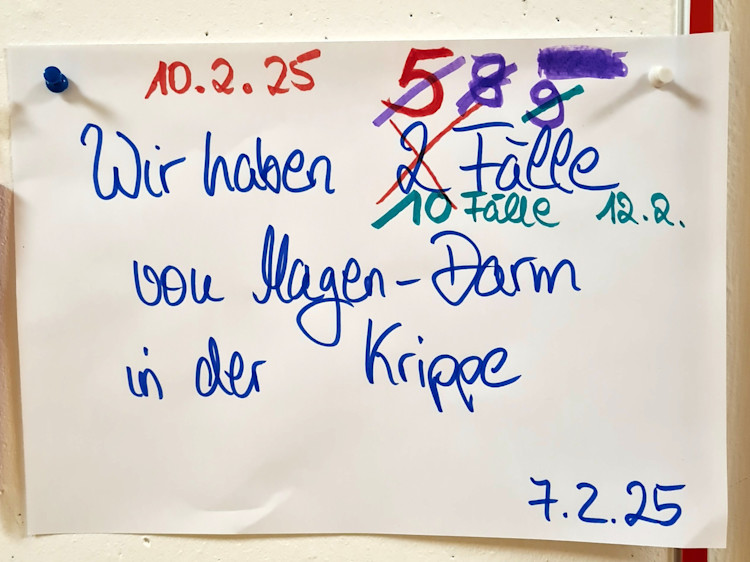 10.2.25 5 8 9
Wir haben 2 Fälle
10 Fälle 12.2.
von Magen-Darm
in der Krippe
7.2.25